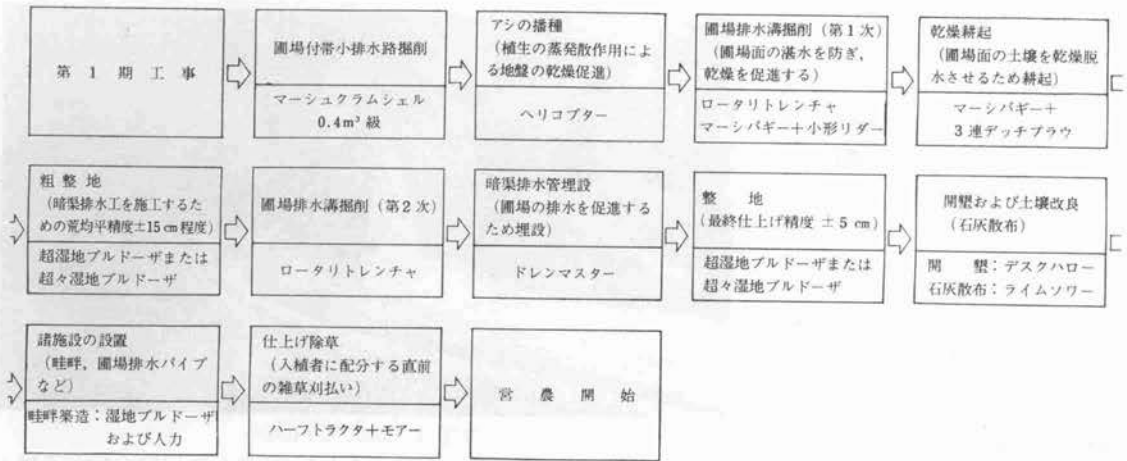 第１期工事
圃場付帯小排水路掘削
マーシュクラムシェル
0.4m³ 級
アシの播種
(植生の蒸発散作用によ
る地盤の乾燥促進)
ヘリコプター
圃場排水溝掘削（第１次）
(圃場面の湛水を防ぎ,
乾燥を促進する)
ロータリトレンチャ
マーシバギー＋小形リダー
乾燥耕起
(圃場面の土壌を乾燥脱
水させるため耕起)
マーシバギー＋
３連デッチプラウ
粗整地
(暗渠排水工を施工するた
めの荒均平精度±15cm程度)
超湿地ブルドーザまたは
超々湿地ブルドーザ
圃場排水溝掘削（第２次）
ロータリトレンチャ
暗渠排水管埋設
(圃場の排水を促進する
ため埋設)
ドレンマスター
整地
(最終仕上げ精度 ±5 cm)
超湿地ブルドーザまたは
超々湿地ブルドーザ
開墾および土壌改良
(石灰散布)
開墾：デスクハロー
石灰散布：ライムソワー
諸施設の設置
(畦畔, 圃場排水パイプ
など)
畦畔築造：湿地ブルドーザ
および人力
仕上げ除草
(入植者に配分する直前
の雑草刈払い)
ハーフトラクタ＋モアー
営農開始